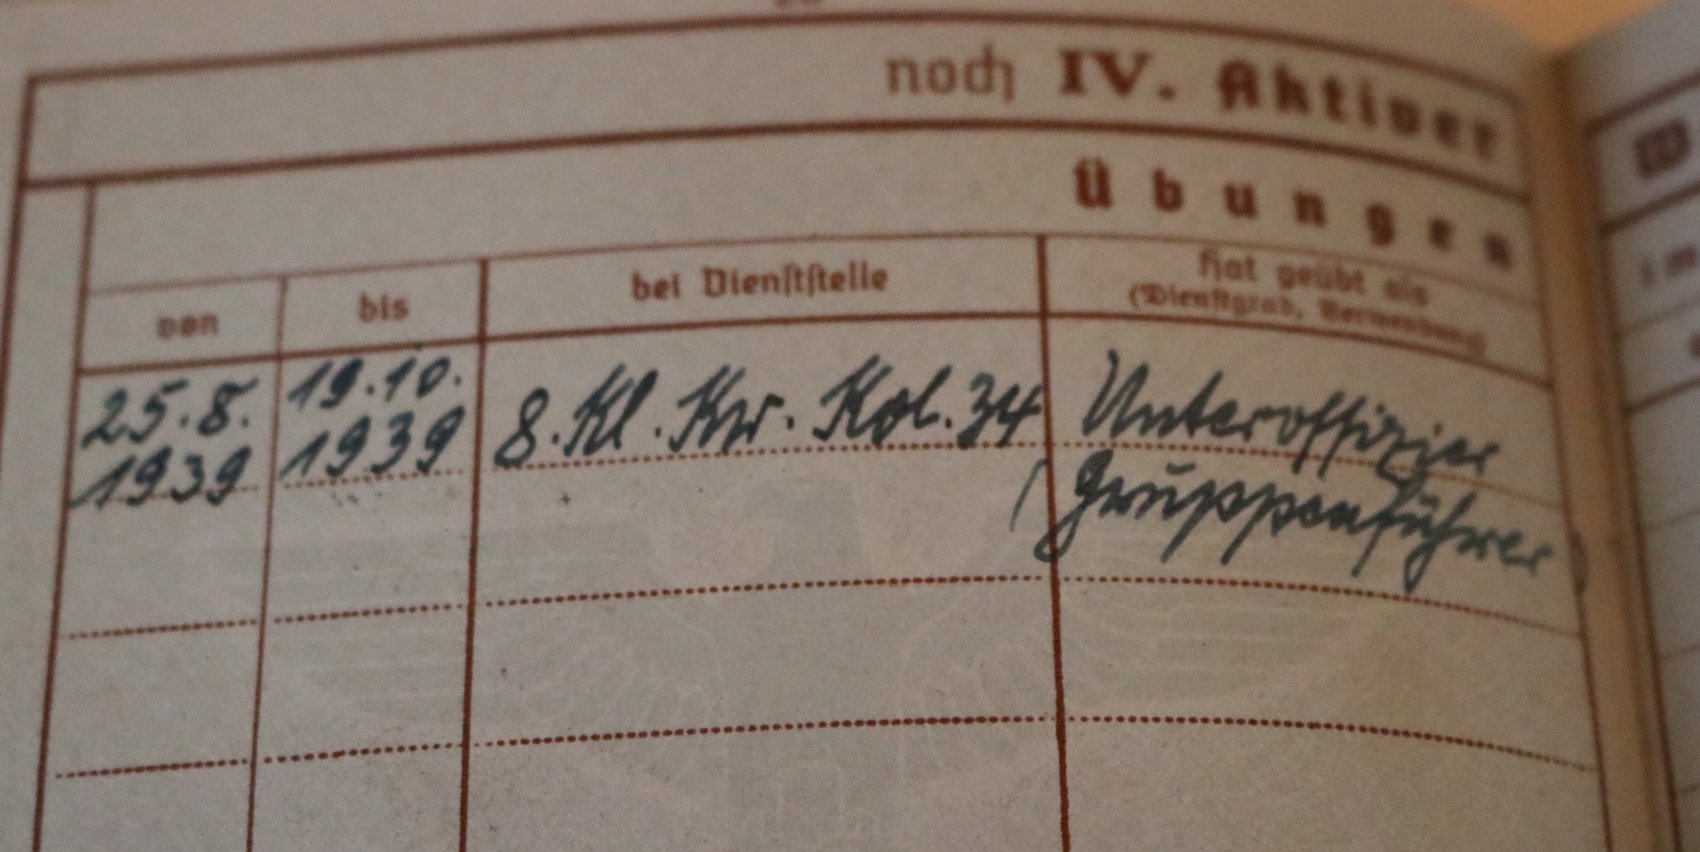 noch IV. Aktiver
Übungen
von bis bei Dienststelle Hat geübt als
(Dienstgrad, Verwendung)
25.8. 19.10. 8. Kl. Kw. Kol. 34 Unteroffizier
1939 1939 (Gruppenführer)
W